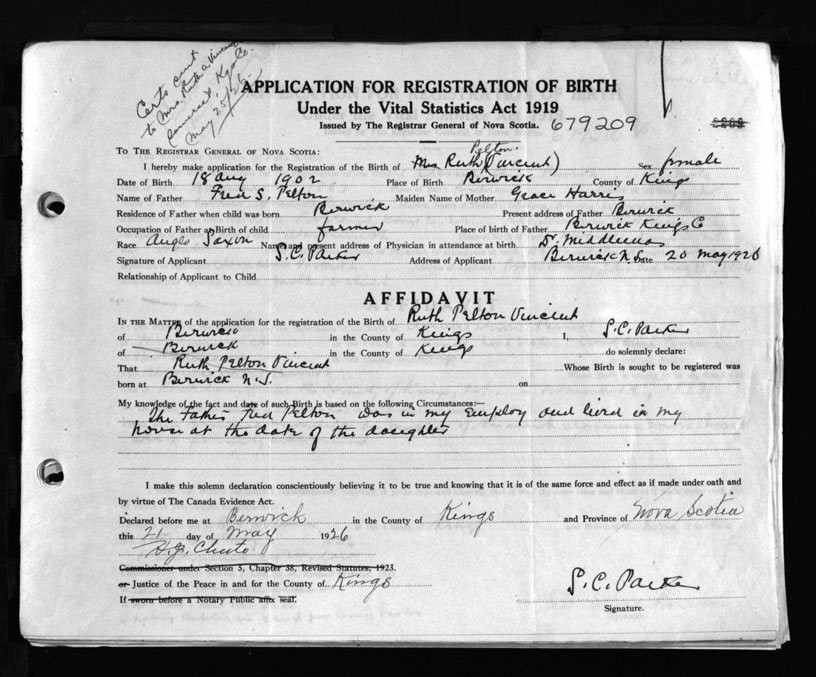 Certs sent
to Mrs. Ruth A Vincent
Somerset, Kgs Co.
May 25/26.
APPLICATION FOR REGISTRATION OF BIRTH
Under the Vital Statistics Act 1919
Issued by The Registrar General of Nova Scotia. 679209
TO THE REGISTRAR GENERAL OF NOVA SCOTIA:
Pelton.
I hereby make application for the Registration of the Birth of Mrs Ruth (Vincent) Sex female
Date of Birth 18 Aug 1902 Place of Birth Berwick County of Kings
Name of Father Fred S. Pelton Maiden Name of Mother Grace Harris
Residence of Father when child was born Berwick Present address of Father Berwick
Occupation of Father at Birth of child farmer Place of birth of Father Berwick Kings Co
Race Anglo Saxon Name and present address of Physician in attendance at birth Dr. Middlemas
Signature of Applicant S. C. Parker Address of Applicant Berwick N.S. Date 20 May 1926
Relationship of Applicant to Child
AFFIDAVIT
IN THE MATTER of the application for the registration of the Birth of Ruth Pelton Vincent
of Berwick in the County of Kings I, S. C. Parker
of Berwick in the County of Kings do solemnly declare:
That Ruth Pelton Vincent Whose Birth is sought to be registered was
born at Berwick N.S. on
My knowledge of the fact and date of such Birth is based on the following Circumstances:—
The Father Fred Pelton was in my Employ and lived in my
house at the date of the daughter
I make this solemn declaration conscientiously believing it to be true and knowing that it is of the same force and effect as if made under oath and
by virtue of The Canada Evidence Act.
Declared before me at Berwick in the County of Kings and Province of Nova Scotia
this 21 day of May 1926
H. J. Chute
Commissioner under Section 5, Chapter 38, Revised Statutes, 1923.
or Justice of the Peace in and for the County of Kings
S. C. Parker
If sworn before a Notary Public affix seal.
Signature.